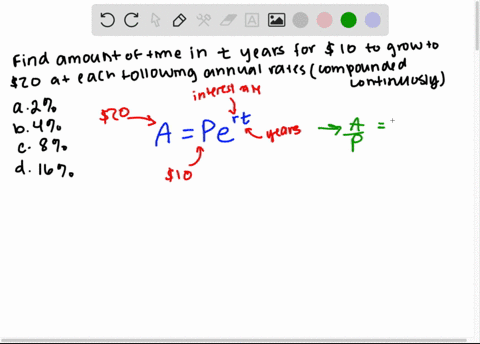 Find amount of time in t years for $10 to grow to
$20 at each following annual rates (compounded
continuously)
a. 2%
b. 4%
c. 8%
d. 16%
interest rate
$20
A = Pe^rt
years
$10
→ A/P =